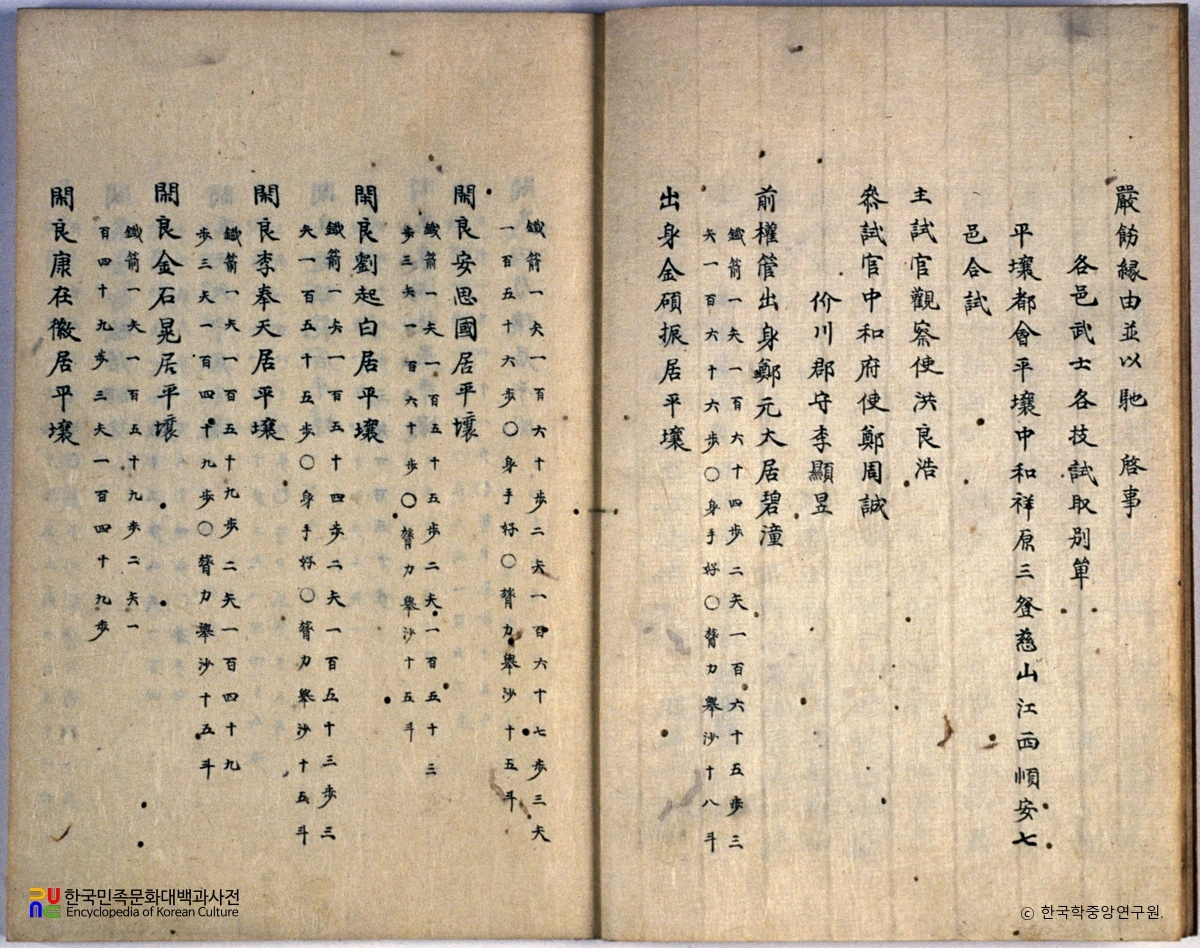 嚴飭縁由並以馳 啓事
各邑武士各技試取別單
平壤都會平壤中和祥原三登慈山江西順安七
邑合試
主試官觀察使洪良浩
叅試官中和府使鄭周誠
价川郡守李顯昱
前權管出身鄭元大居碧潼
鐵箭一矢一百六十四步二矢一百六十五步三
矢一百六十六步○身手好○膂力擧沙十八斗
出身金碩振居平壤
鐵箭一矢一百六十步二矢一百六十七步三矢
一百五十六步○身手好○膂力擧沙十五斗
閑良安思國居平壤
鐵箭一矢一百五十五步二矢一百五十三
步三矢一百六十步○膂力擧沙十五斗
閑良劉起白居平壤
鐵箭一矢一百五十四步二矢一百五十三步三
矢一百五十五步○身手好○膂力擧沙十五斗
閑良李奉天居平壤
鐵箭一矢一百五十九步二矢一百四十九
步三矢一百四十九步○膂力擧沙十五斗
閑良金石晃居平壤
鐵箭一矢一百五十九步二矢一
百四十九步三矢一百四十九步
閑良康在徽居平壤
한국민족문화대백과사전
Encyclopedia of Korean Culture
© 한국학중앙연구원.